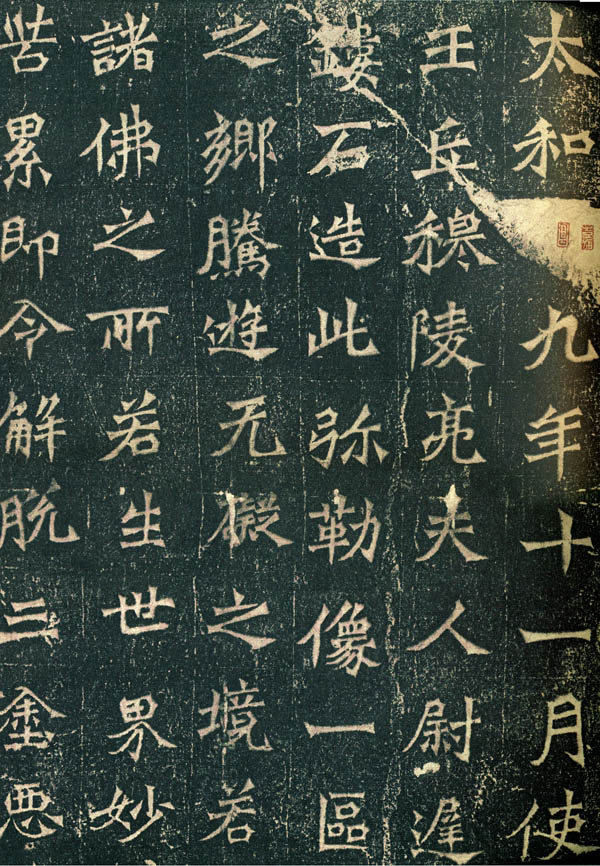 太和九年十一月使
王丘穆陵亮夫人尉遲
鏤石造此弥勒像一區
之鄉騰遊无礙之境若
諸佛之所若生世界妙
苦累即令解脫三塗惡